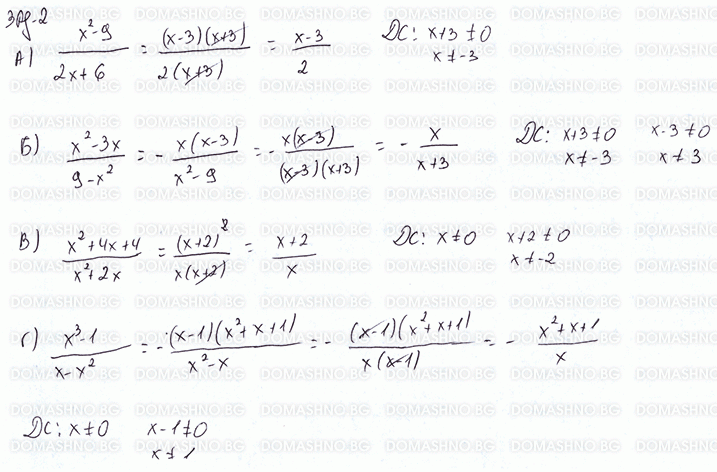 Зад. 2
А) (x²-9)/(2x+6) = ((x-3)(x+3))/(2(x+3)) = (x-3)/2 ДС: x+3≠0
x≠-3
Б) (x²-3x)/(9-x²) = -(x(x-3))/(x²-9) = -(x(x-3))/((x-3)(x+3)) = -x/(x+3) ДС: x+3≠0 x-3≠0
x≠-3 x≠3
В) (x²+4x+4)/(x²+2x) = (x+2)²/(x(x+2)) = (x+2)/x ДС: x≠0 x+2≠0
x≠-2
Г) (x³-1)/(x-x²) = -((x-1)(x²+x+1))/(x²-x) = -((x-1)(x²+x+1))/(x(x-1)) = -(x²+x+1)/x
ДС: x≠0 x-1≠0
x≠1
DOMASHNO.BG